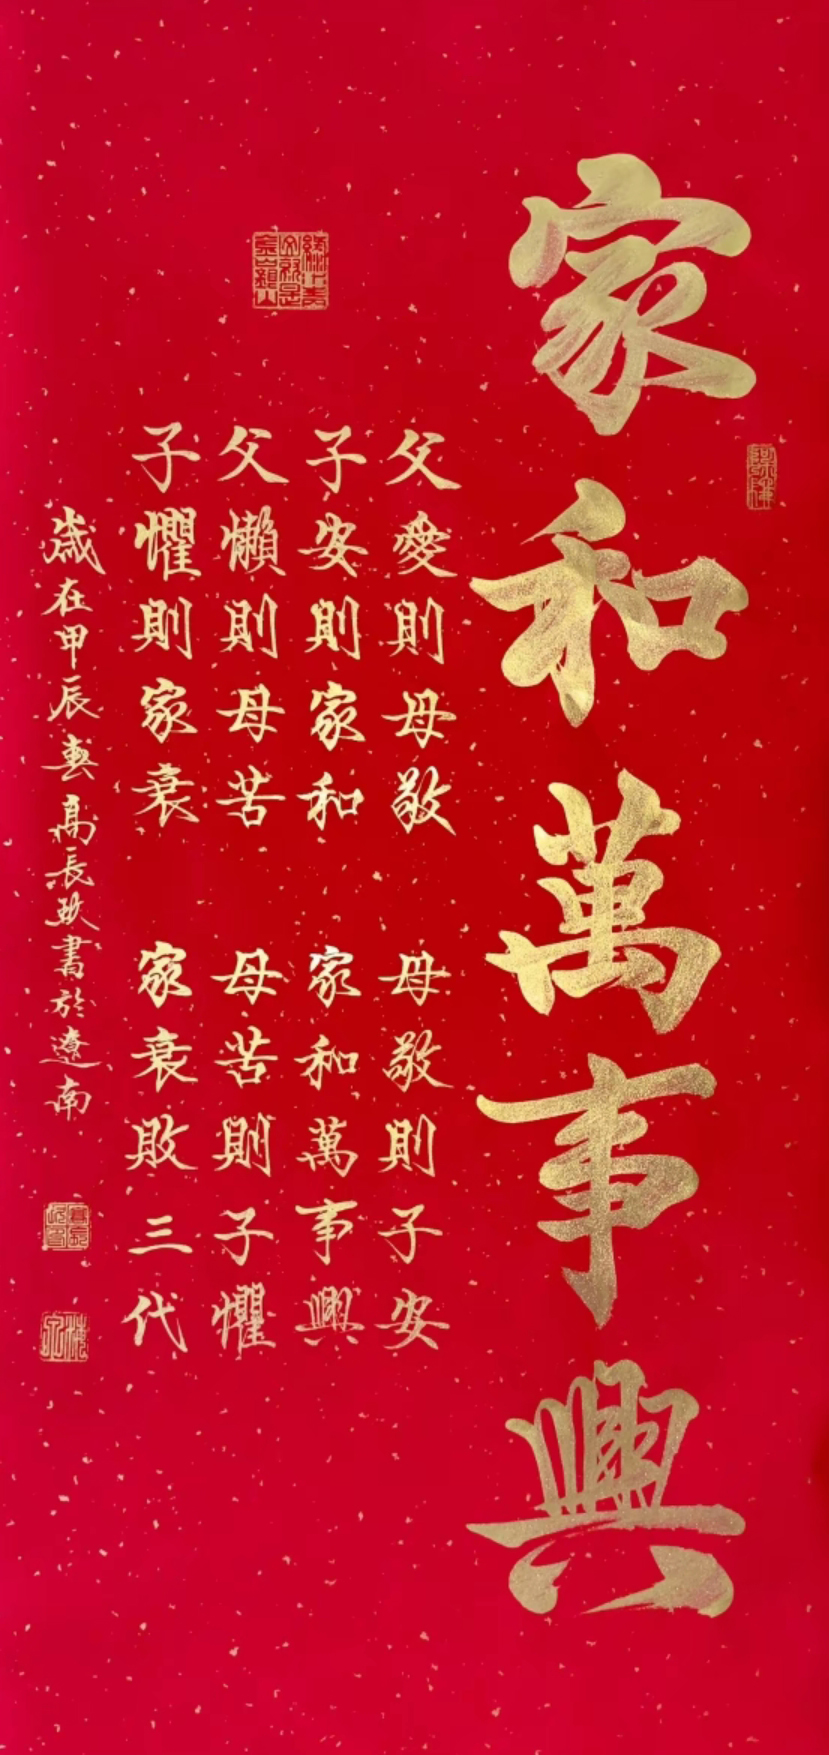 家和萬事興
父愛則母敬 母敬則子安
子安則家和 家和萬事興
父懶則母苦 母苦則子懼
子懼則家衰 家衰敗三代
歲在甲辰春高長玖書於遼南